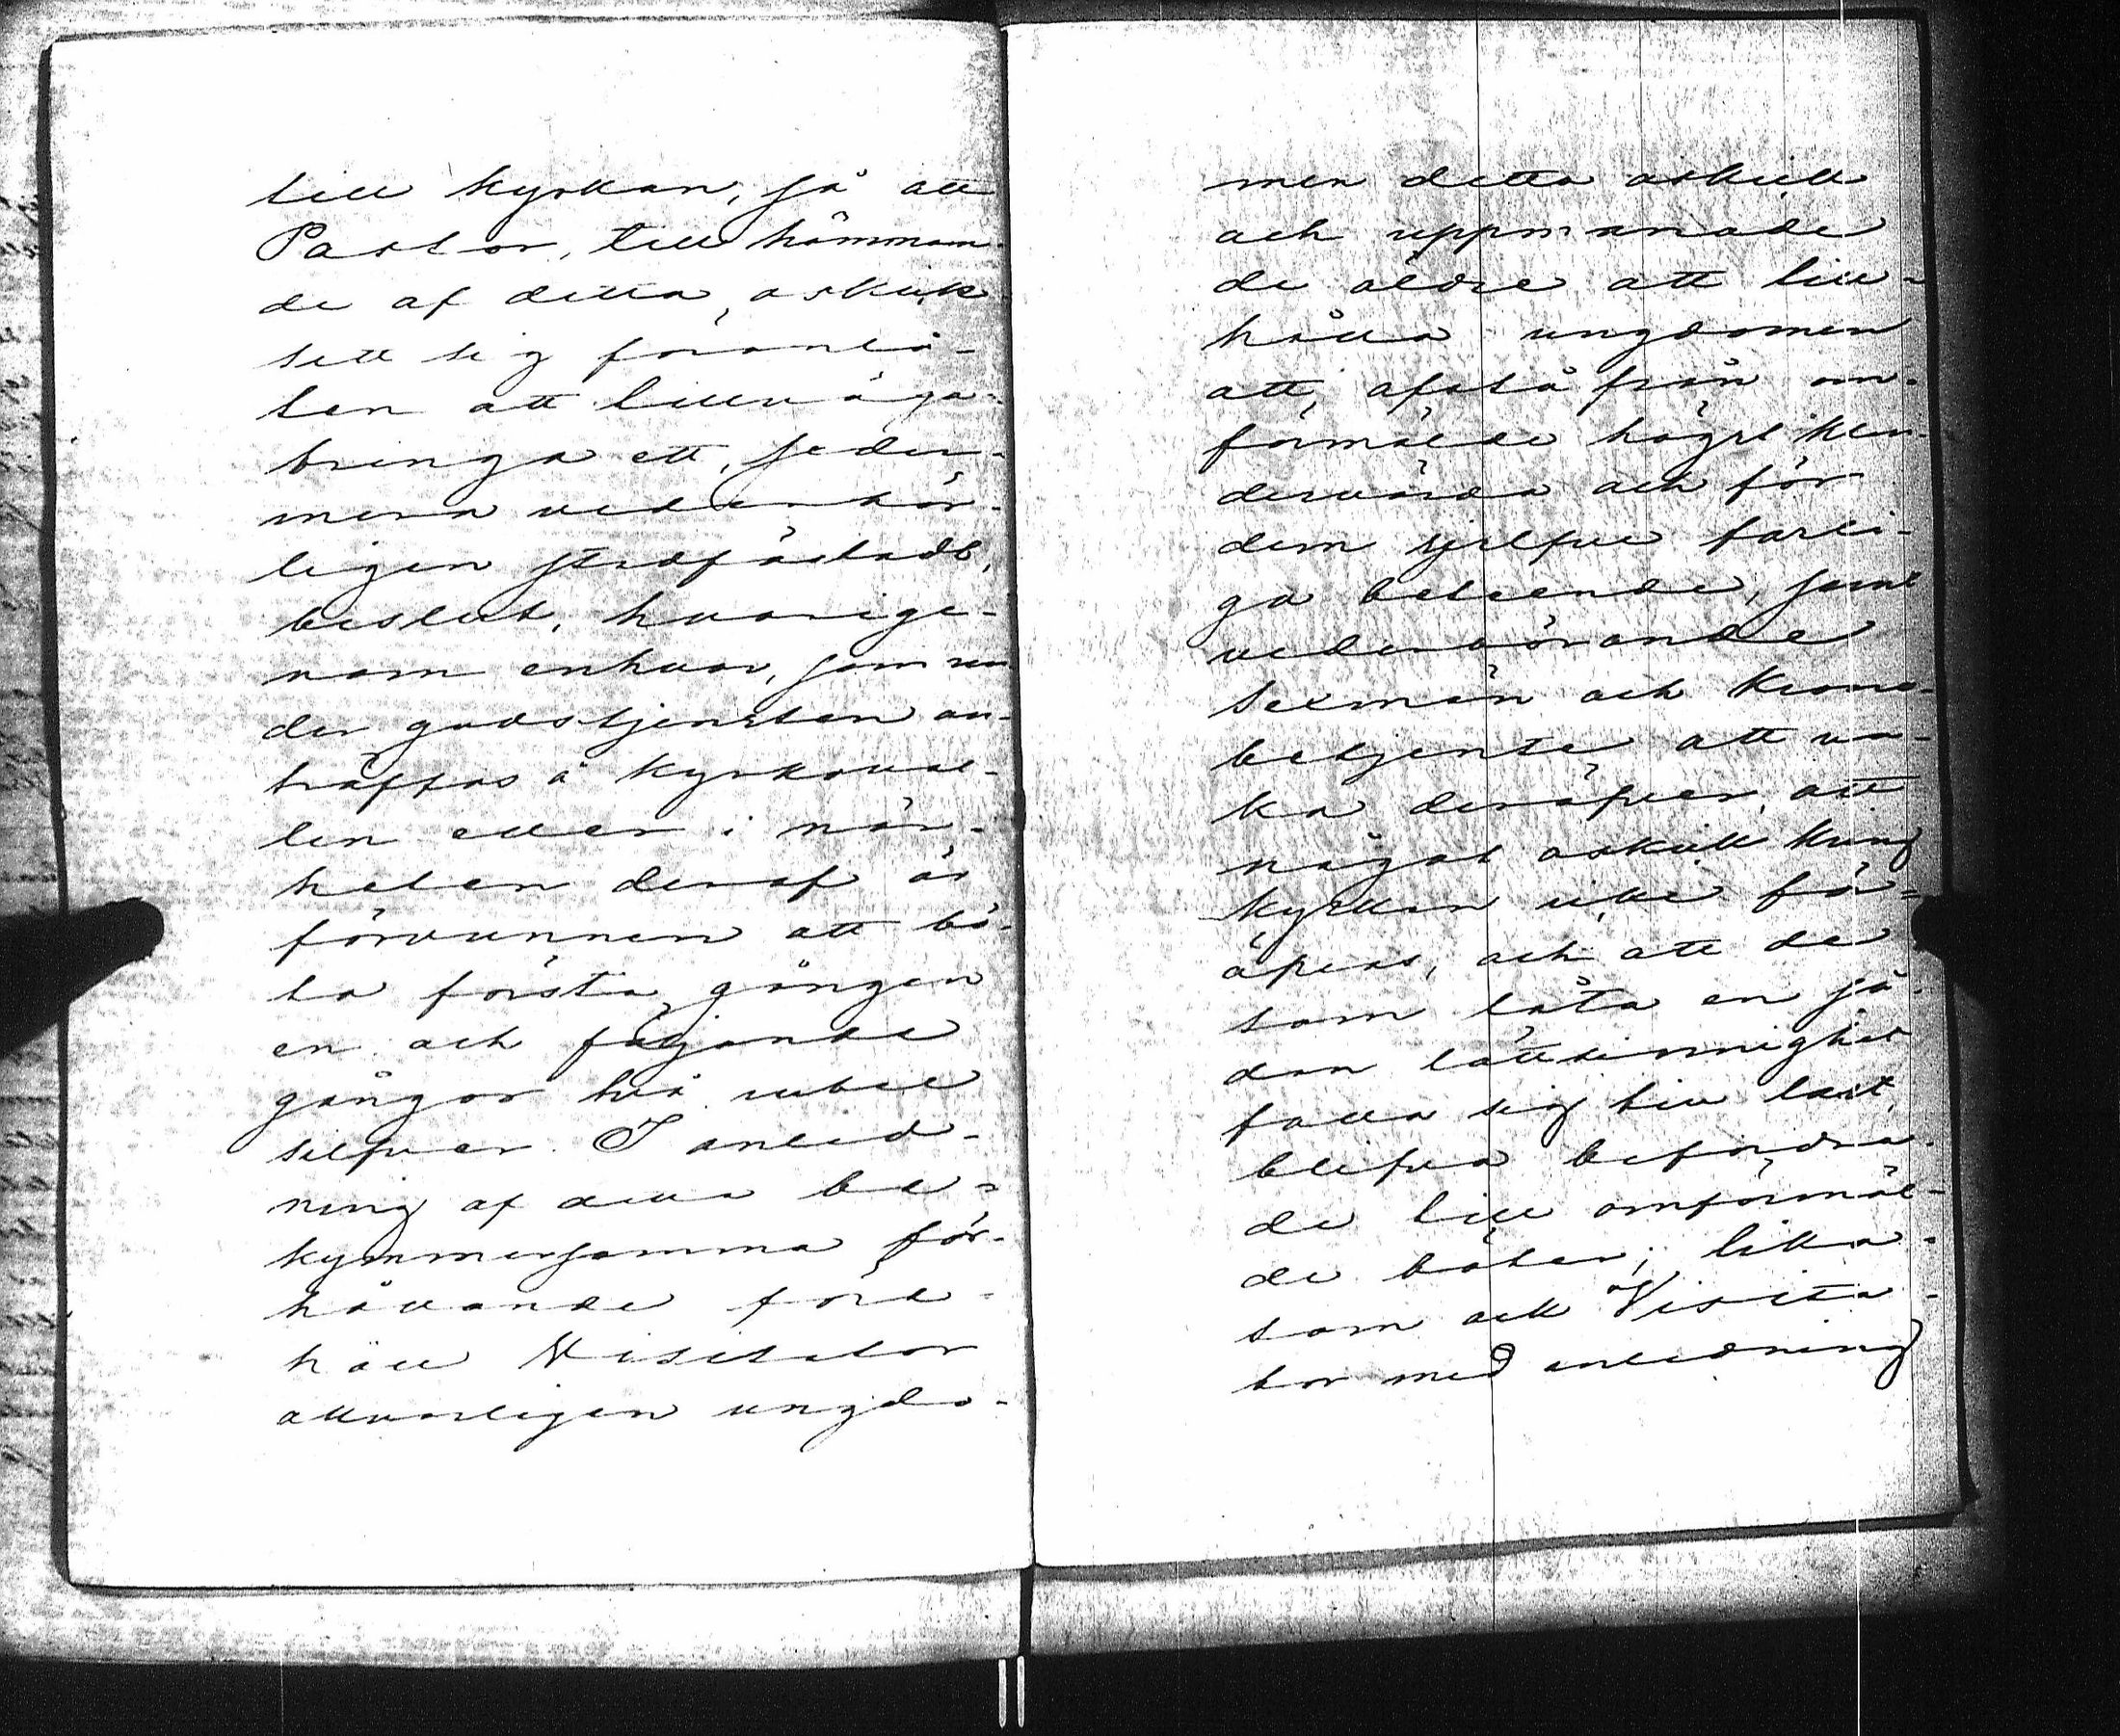 till kyrkan, så att
Pastor, till hämman-
de af detta oskick
sett sig föranlå-
ten att tillväga-
bringa ett, seder-
mera vederbör-
ligen stadfästadt,
beslut, hvarige-
nom enhvar, som un-
der gudstjensten an-
träffas å kyrkoval-
len eller i när-
heten deraf är
förvunnen att bö-
ta första gången
en och följande
gångor två rubel
silfver. I anled-
ning af detta be-
kymmersamma för-
hållande före-
höll Visitator
allvarligen ungdo-
men detta oskick
och uppmanade
de äldre att till-
hålla ungdomen
att afstå från om-
förmälde högst klan-
dervärda och för
dem sjelfve farli-
ga beteende, samt
vederbörande
sexmän och krono-
betjente att va-
ka deröfver, att
något oskick kring
kyrkan icke för-
öfvas, och att de
som låta en så-
dan lättsinnighet
falla sig till last,
blifva befordra-
de till omförmäl-
de böter; lika-
som ock Visita-
tor med anledning